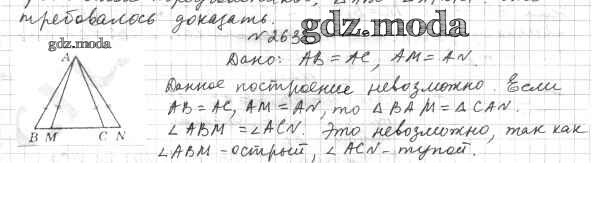 требовалось доказать.
№263
gdz.moda
gdz.moda
Дано: AB = AC, AM = AN.
A
Данное построение невозможно. Если
AB = AC, AM = AN, то △BAM = △CAN.
∠ABM = ∠ACN. Это невозможно, так как
∠ABM - острый, ∠ACN - тупой.
B M C N